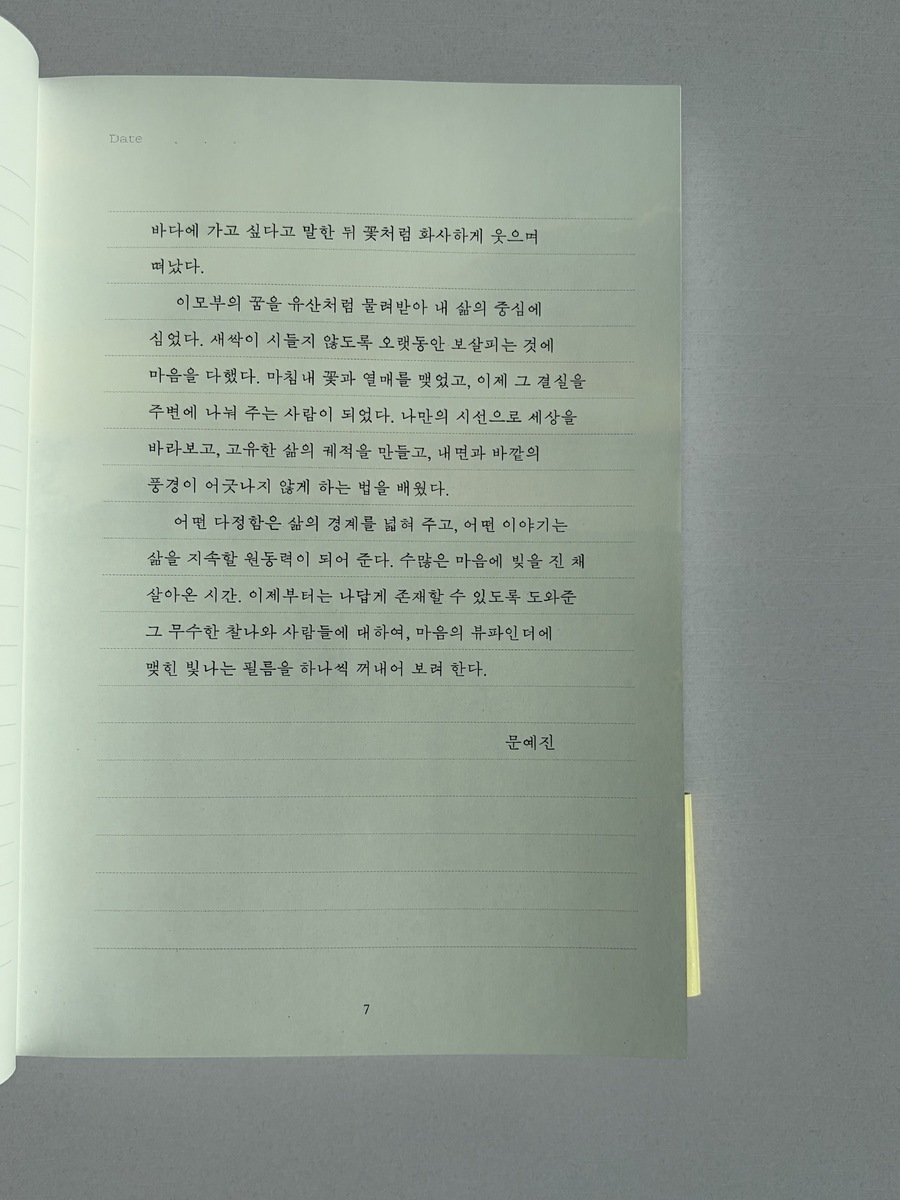 Date . . .
바다에 가고 싶다고 말한 뒤 꽃처럼 화사하게 웃으며
떠났다.
이모부의 꿈을 유산처럼 물려받아 내 삶의 중심에
심었다. 새싹이 시들지 않도록 오랫동안 보살피는 것에
마음을 다했다. 마침내 꽃과 열매를 맺었고, 이제 그 결실을
주변에 나눠 주는 사람이 되었다. 나만의 시선으로 세상을
바라보고, 고유한 삶의 궤적을 만들고, 내면과 바깥의
풍경이 어긋나지 않게 하는 법을 배웠다.
어떤 다정함은 삶의 경계를 넓혀 주고, 어떤 이야기는
삶을 지속할 원동력이 되어 준다. 수많은 마음에 빚을 진 채
살아온 시간. 이제부터는 나답게 존재할 수 있도록 도와준
그 무수한 찰나와 사람들에 대하여, 마음의 뷰파인더에
맺힌 빛나는 필름을 하나씩 꺼내어 보려 한다.
문예진
7